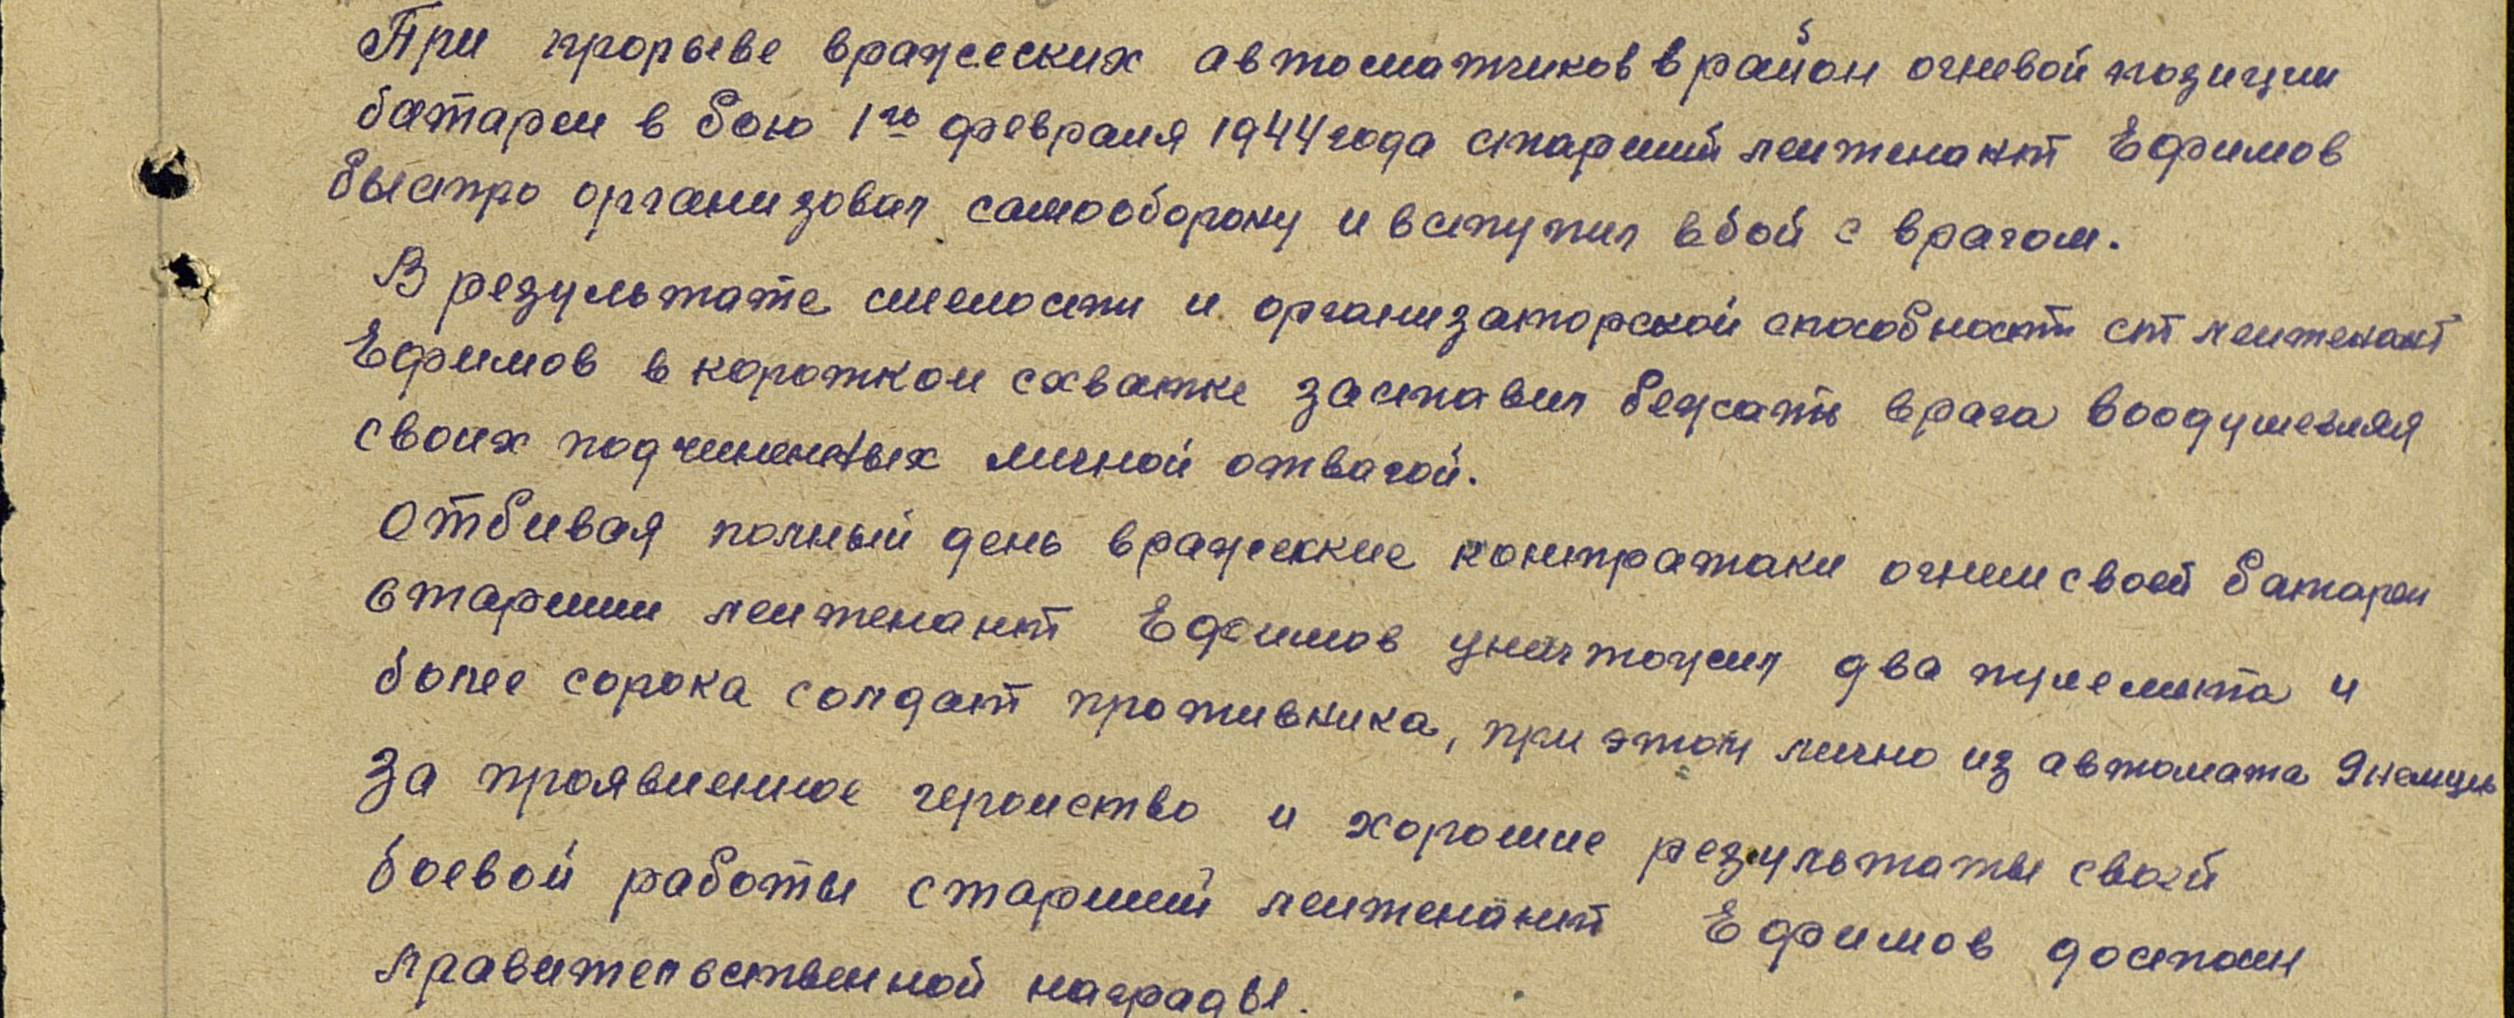 При прорыве вражеских автоматчиков в район огневой позиции
батареи в бою 1го февраля 1944 года старший лейтенант Ефимов
быстро организовал самооборону и вступил в бой с врагом.
В результате смелости и организаторской способности ст лейтенант
Ефимов в короткой схватке заставил бежать врага воодушевляя
своих подчиненных личной отвагой.
Отбивая полный день вражеские контратаки огнем своей батареи
старший лейтенант Ефимов уничтожил два пулемета и
более сорока солдат противника, при этом лично из автомата 9 немцев
За проявленное геройство и хорошие результаты своей
боевой работы старший лейтенант Ефимов достоин
правительственной награды.